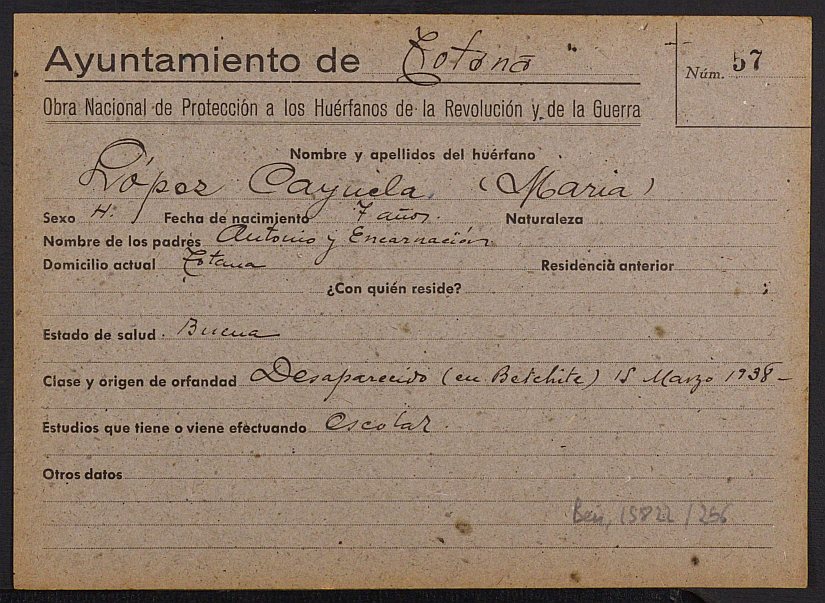 Ayuntamiento de Totana
Núm. 57
Obra Nacional de Protección a los Huérfanos de la Revolución y de la Guerra
Nombre y apellidos del huérfano
López Cayuela (Maria)
Sexo H. Fecha de nacimiento 7 años. Naturaleza
Nombre de los padres Antonio y Encarnación
Domicilio actual Totana Residencia anterior
¿Con quién reside?
Estado de salud. Buena
Clase y origen de orfandad Desaparecido (en Belchite) 15 Marzo 1938-
Estudios que tiene o viene efectuando Escolar.
Otros datos
Ben, 15822/256